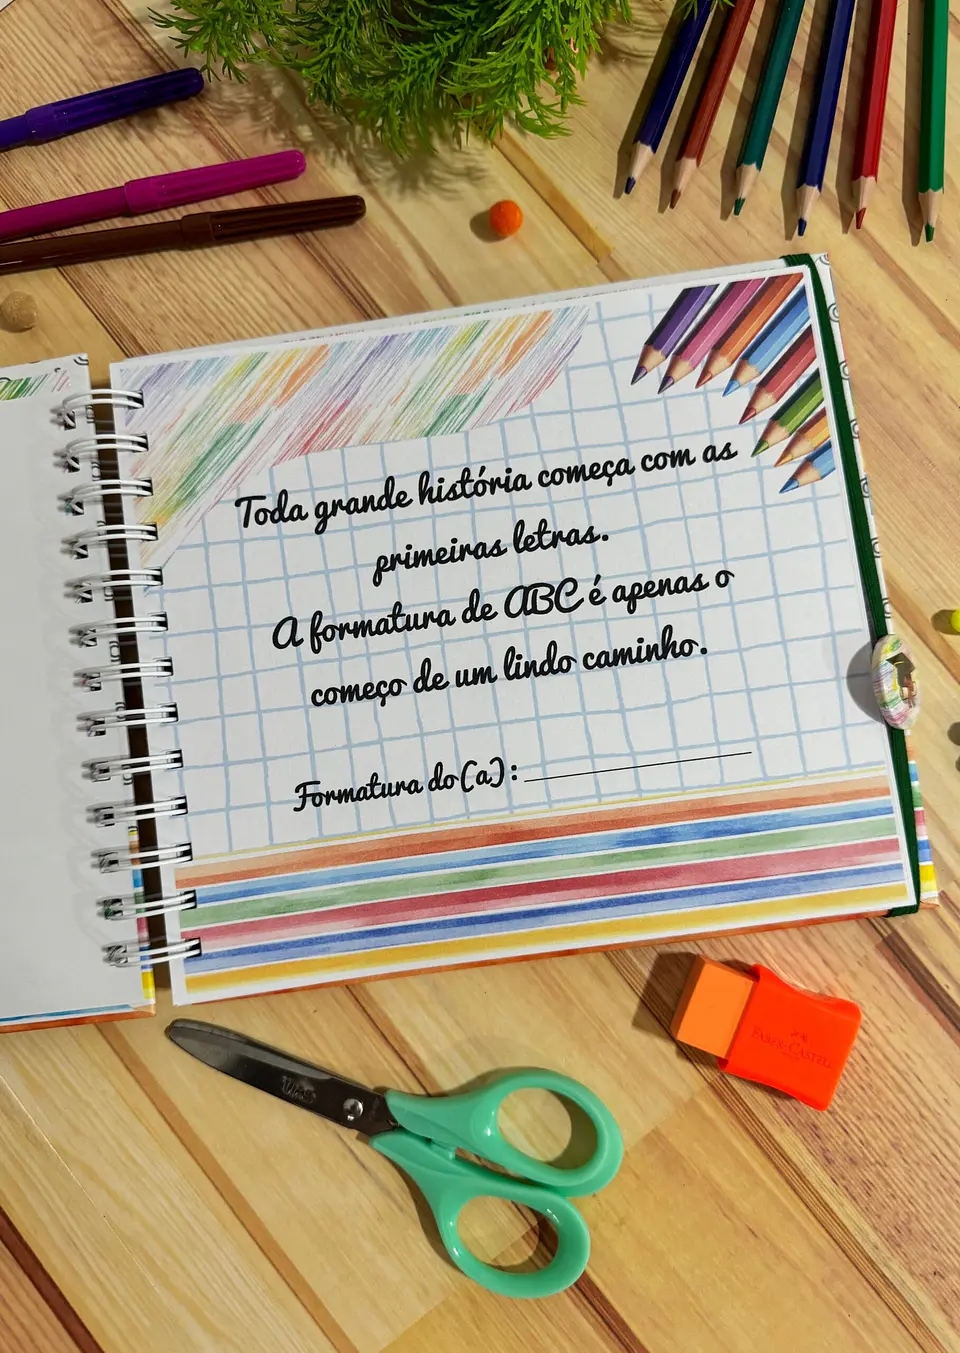 Toda grande história começa com as
primeiras letras.
A formatura de ABC é apenas o
começo de um lindo caminho.
Formatura do(a): 
FABER-CASTELL